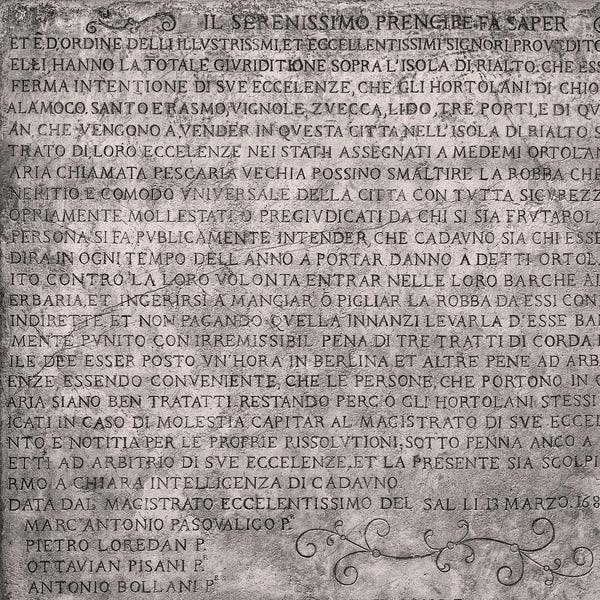 IL SERENISSIMO PRENCIPE FA SAPER
ET È D'ORDINE DELLI ILLVSTRISSMI, ET ECCELLENTISSIMI SIGNORI PROVEDITO
ELLI HANNO LA TOTALE GIVRIDITIONE SOPRA L'ISOLA DI RIALTO, CHE ESS
FERMA INTENTIONE DI SVE ECCELENZE, CHE GLI HORTOLANI DI CHIO
ALAMOCO, SANTO ERASMO, VIGNOLE, ZVECCA, LIDO, TRE PORTI, E DI QV
AN CHE VENGONO A, VENDER IN QVESTA CITTA NELL'ISOLA DI RIALTO S
TRATO DI LORO ECCELENZE NEI STATII ASSEGNATI A MEDEMI ORTOLAN
ARIA CHIAMATA PESCARIA VECHIA POSSINO SMALTIRE LA ROBBA CHE
NEFITIO E COMODO VNIVERSALE DELLA CITTA CON TVTTA SICVREZZ
OPRIAMENTE MOLLESTATI, O PREGIVDICATI DA CHI SI SIA FRVTAROL
PERSONA SI FA PVBLICAMENTE INTENDER, CHE CADAVNO, SIA CHI ESSE
DIRA IN OGNI TEMPO DELL ANNO A PORTAR DANNO A DETTI ORTOL
ITO CONTRO LA LORO VOLONTA ENTRAR NELLE LORO BARCHE AL
ERBARIA, ET INGERIRSI A MANGIAR Ò PIGLIAR LA ROBBA DA ESSI CON
INDIRETTE, ET NON PAGANDO QVELLA INNANZI LEVARLA D'ESSE BAR
MENTE PVNITO CON IRREMISSIBIL PENA DI TRE TRATTI DI CORDA
ILE DEE ESSER POSTO VN'HORA IN BERLINA ET ALTRE PENE AD ARB
ENZE ESSENDO CONVENIENTE, CHE LE PERSONE, CHE PORTONO IN
ARIA SIANO BEN TRATATTI, RESTANDO PERCÒ GLI HORTOLANI STESSI
ICATI IN CASO DI MOLESTIA CAPITAR AL MAGISTRATO DI SVE ECCEL
NTO, E NOTITIA PER LE PROPRIE RISSOLVTIONI, SOTTO PENNA ANCO A
ETTI AD ARBITRIO DI SVE ECCELENZE, ET LA PRESENTE SIA SCOLPI
RMO A CHIARA INTELLIGENZA DI CADAVNO
DATA DAL MAGISTRATO ECCELENTISSIMO DEL SAL LI 13 MARZO. 168
MARC' ANTONIO PASQVALIGO P.R
PIETRO LOREDAN P.R
OTTAVIAN PISANI P.R
ANTONIO BOLLANI P.R